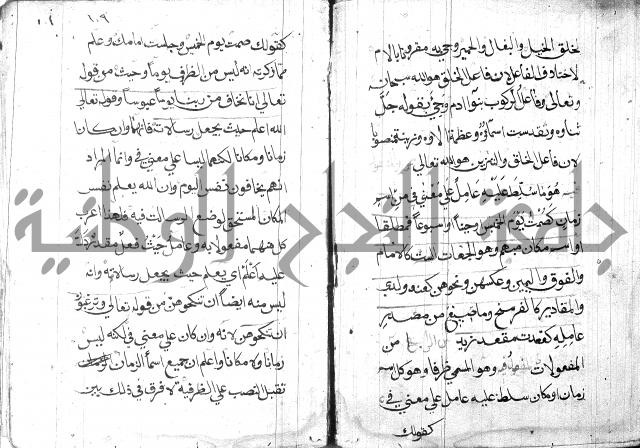 خلق الخيل والبغال والحمير وجي به مقرونا بالام
لاختلاف الفاعل لان فاعل الخلق هو الله سبحانه
وتعالى وفاعل الركوب بنوا ادم وجي بقوله جل
ثناوه وتقدست اسماؤه وعظمت الاوه وزينة منصوبا
لان فاعل الخلق والتزيين هو الله تعالى
هو ما سلط عليه عامل على معنى في من اسم
زمان كصمت يوم الخميس وحينا واسبوعا
او اسم مكان مبهم وهو الجهات الست كالامام
والفوق واليمين وعكسهن ونحوهن كعند ولدي
والمقادير كالفرسخ وما صيغ من مصدر
عامله كقعدت مقعد زيد من
المفعولات وهو المسمى ظرفا وهو كل اسم
زمان او مكان سلط عليه عامل على معنى في
كقولك
١٠٩
كقولك صمت يوم الخميس وجلست امامك وعلم
مما ذكرته انه ليس من الظرف يوما وحيث من قوله
تعالى انا نخاف من ربنا يوما عبوسا وقوله تعالى
الله اعلم حيث يجعل رسالاته فانهما وان كانا
زمانا ومكانا لكنهما ليسا على معنى في وانما المراد
انهم يخافون نفس اليوم وان الله يعلم نفس
المكان المستحق لوضع الرسالة فيه فلهذا اعرب
كل منهما مفعولا به وعامل حيث فعل مقدر دل
عليه اعلم اي يعلم حيث يجعل رسالاته وانه
ليس منه ايضا ان تنكحوهن من قوله تعالى وترغبون
ان تنكحوهن لانه وان كان على معنى في لكنه ليس
زمانا ولا مكانا واعلم ان جميع اسما الزمان
تقبل النصب على الظرفية لا فرق في ذلك بين
جامعة النجاح الوطنية